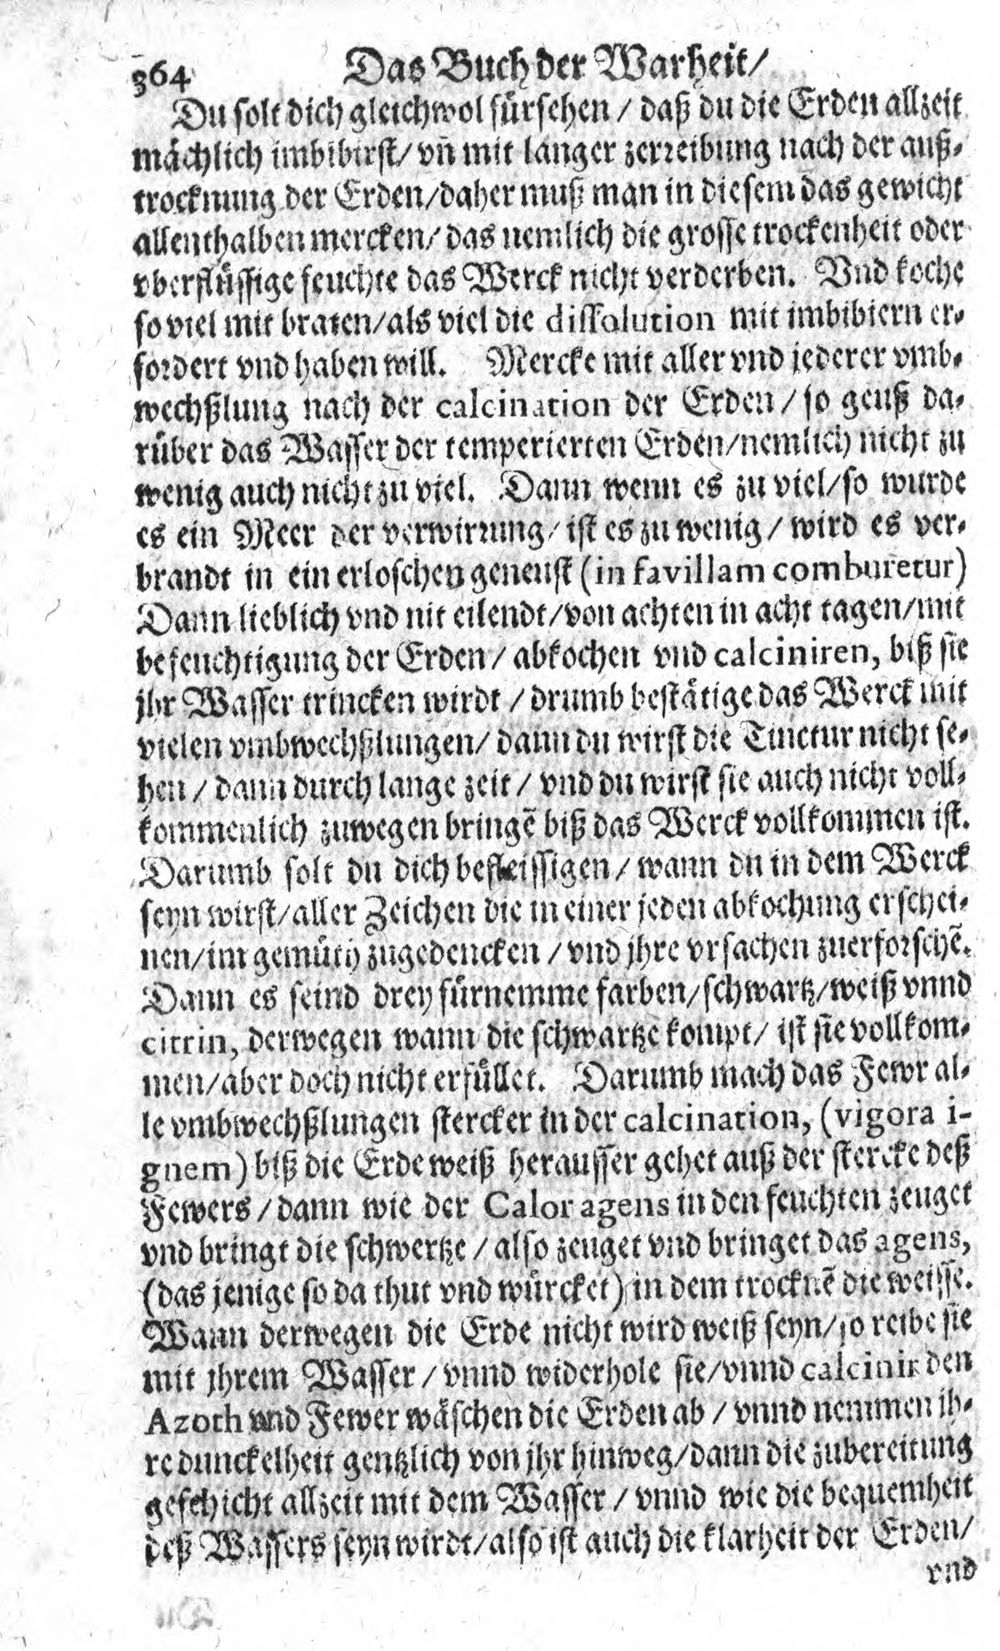 364 Das Buch der Warheit/
Du solt dich gleichwol fürsehen / daß du die Erden allzeit
mächlich imbibirst/ vn̄ mit langer zerreibung nach der auß-
trocknung der Erden/daher muß man in diesem das gewicht
allenthalben mercken/ das nemlich die grosse trockenheit oder
vberflüssige feuchte das Werck nicht verderben. Vnd koche
so viel mit braten/als viel die dissolution mit imbibiern er-
fordert vnd haben will. Mercke mit aller vnd jederer vmb-
wechßlung nach der calcination der Erden / so geuß da-
rüber das Wasser der temperierten Erden/nemlich nicht zu
wenig auch nicht zu viel. Dann wenn es zu viel/so wurde
es ein Meer der verwirrung/ ist es zu wenig / wird es ver-
brandt in ein erloschen geneust (in favillam comburetur)
Dann lieblich vnd nit eilendt/von achten in acht tagen/mit
befeuchtigung der Erden / abkochen vnd calciniren, biß sie
jhr Wasser trincken wirdt / drumb bestätige das Werck mit
vielen vmbwechßlungen/ dann du wirst die Tinctur nicht se-
hen / dann durch lange zeit / vnd du wirst sie auch nicht voll-
kommenlich zuwegen bringē biß das Werck vollkommen ist.
Darumb solt du dich befleissigen / wann du in dem Werck
seyn wirst/aller Zeichen die in einer jeden abkochung erschei-
nen/im gemüth zugedencken / vnd jhre vrsachen zuerforschē.
Dann es seind drey fürnemme farben/schwartz/weiß vnnd
citrin, derwegen wann die schwartze kompt/ ist sie vollkom-
men/aber doch nicht erfüllet. Darumb mach das Fewr al-
le vmbwechßlungen stercker in der calcination, (vigora i-
gnem) biß die Erde weiß herausser gehet auß der stercke deß
Fewers / dann wie der Calor agens in den feuchten zeuget
vnd bringt die schwertze / also zeuget vnd bringet das agens,
(das jenige so da thut vnd würcket) in dem trocknē die weisse.
Wann derwegen die Erde nicht wird weiß seyn/so reibe sie
mit jhrem Wasser / vnnd widerhole sie/vnnd calcinir den
Azoth vnd Fewer wäschen die Erden ab / vnnd nemmen ih-
re dunckelheit gentzlich von jhr hinweg/dann die zubereitung
geschicht allzeit mit dem Wasser / vnnd wie die bequemheit
deß Wassers seyn wirdt/also ist auch die klarheit der Erden/
vnd